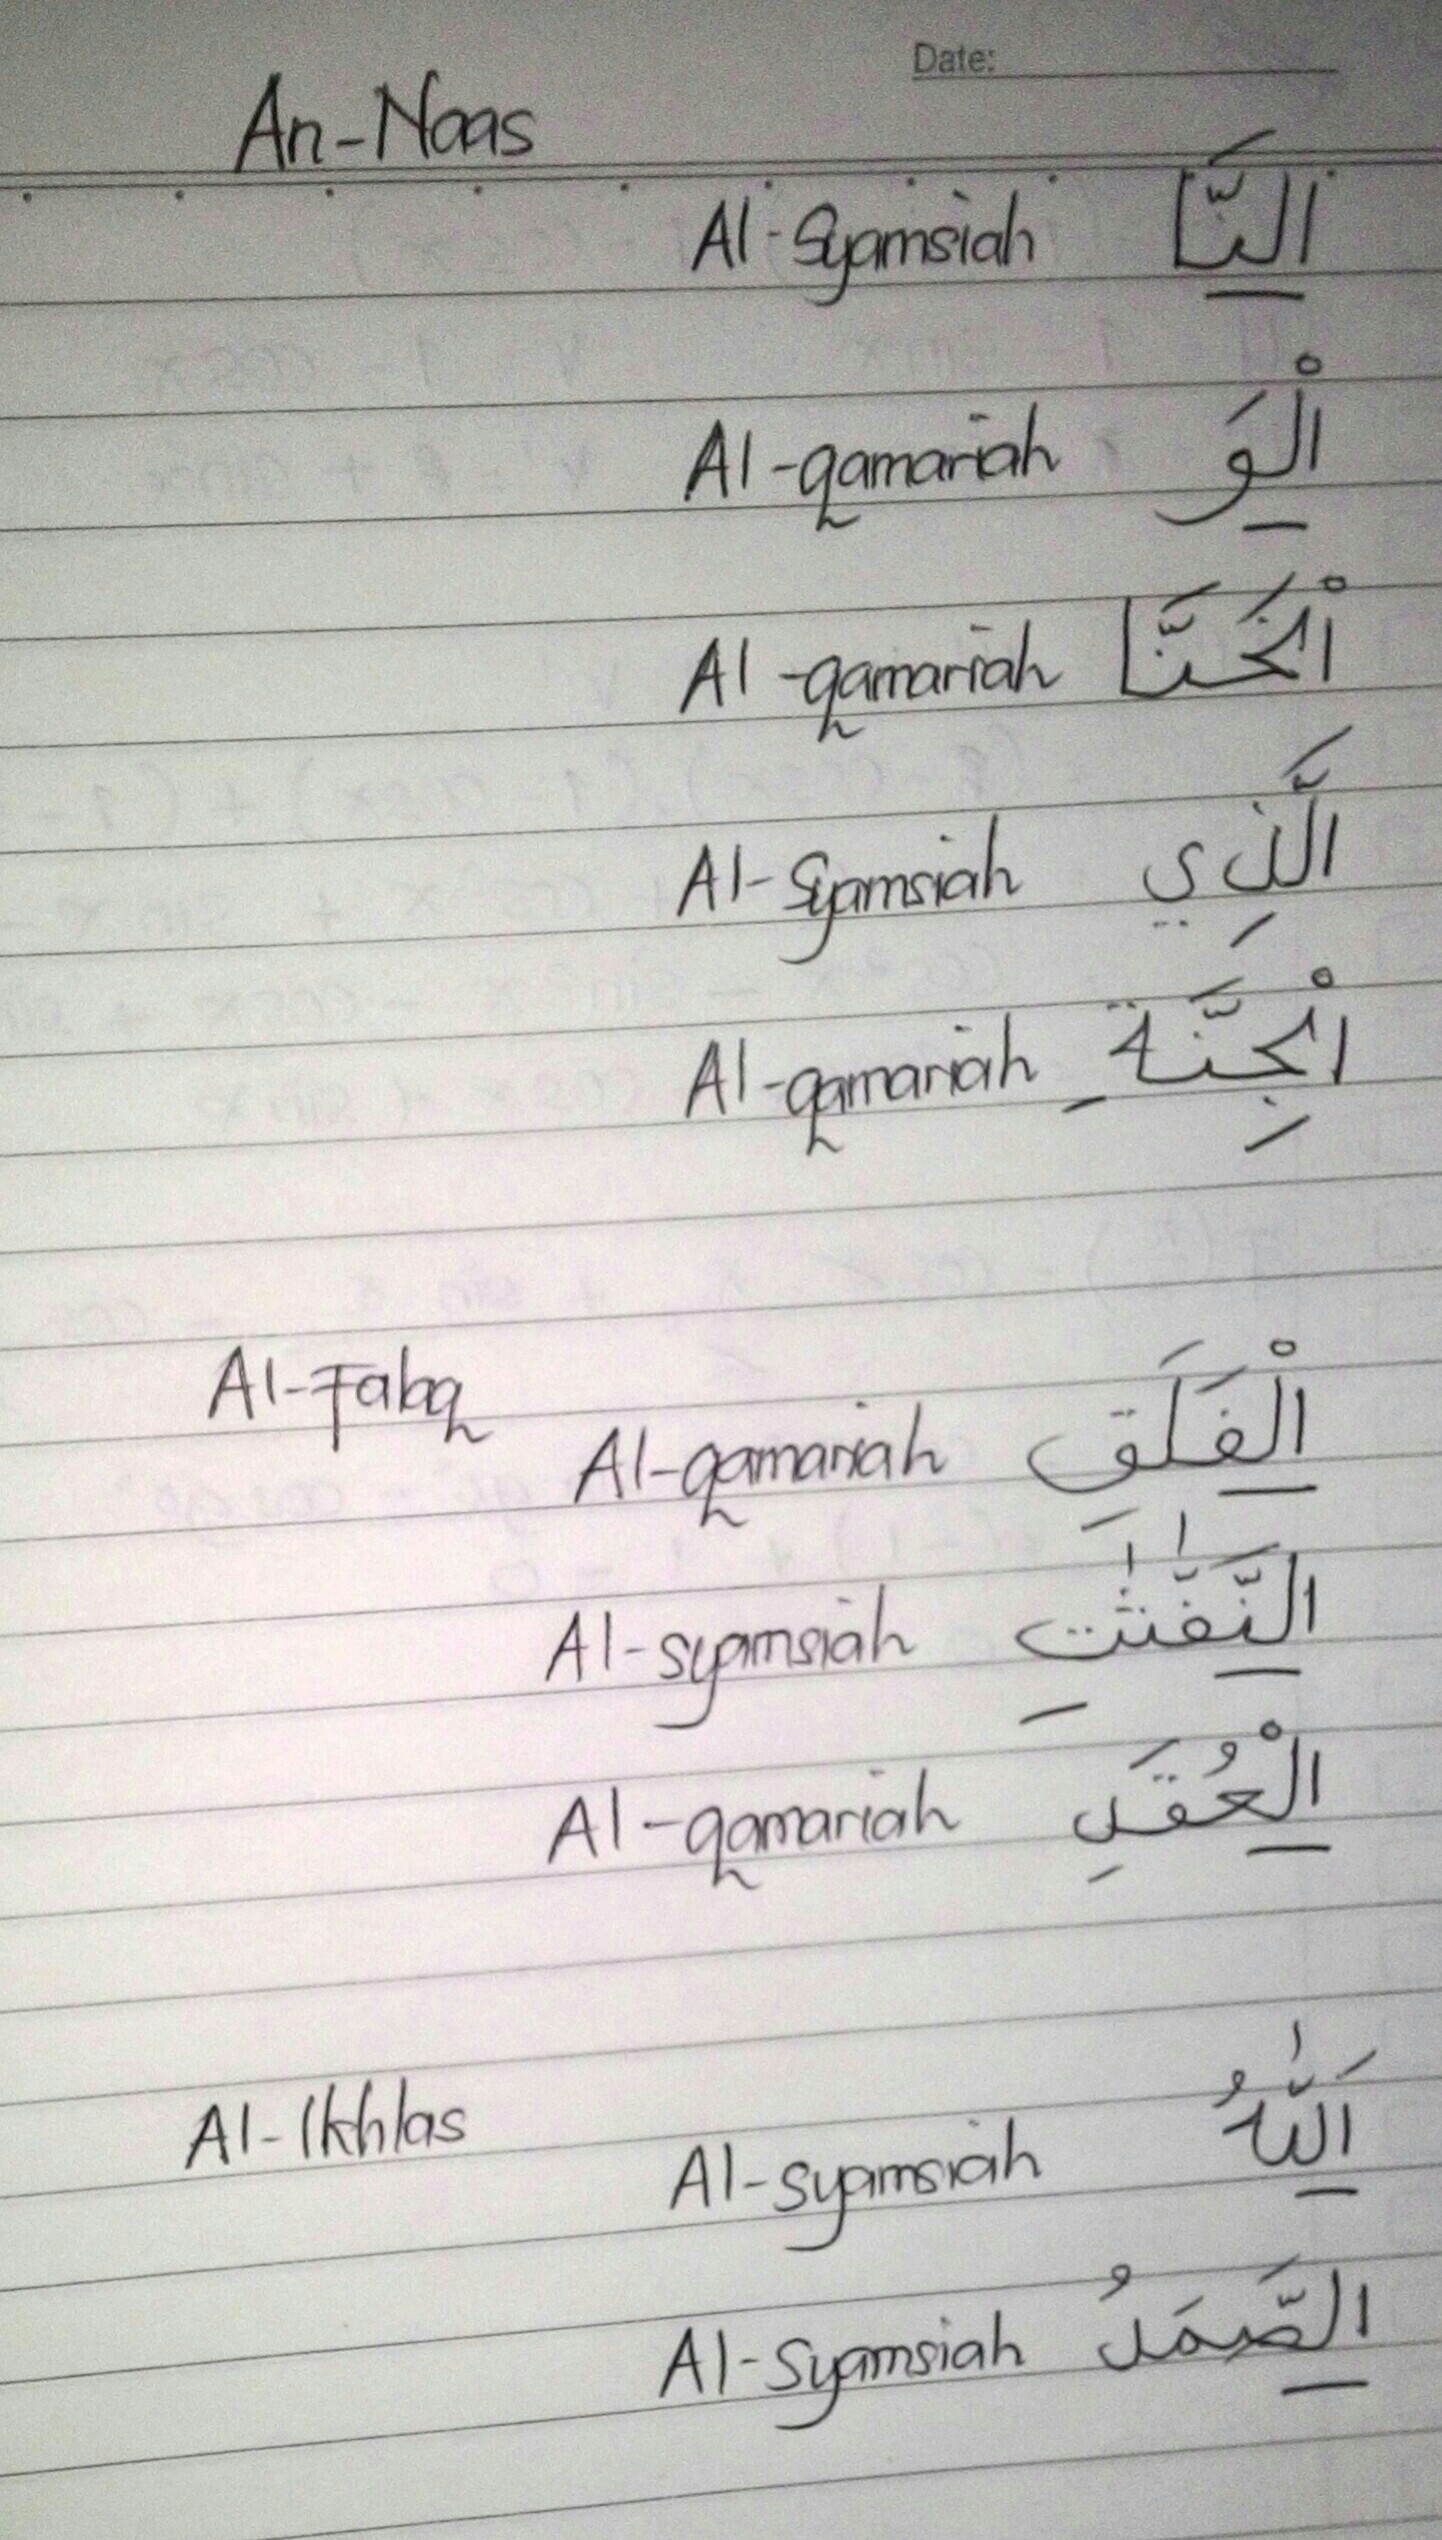 Date:
An-Naas
Al-Syamsiah اَلنَّا
Al-qamariah الْوَ
Al-qamariah الْخَنَّا
Al-Syamsiah الَّذِي
Al-qamariah الْجِنَّةِ
Al-Falaq
Al-qamariah الْفَلَقِ
Al-syamsiah النَّفّٰثٰتِ
Al-qamariah الْعُقَدِ
Al-Ikhlas
Al-syamsiah اَللّٰهُ
Al-Syamsiah الصَّمَدُ